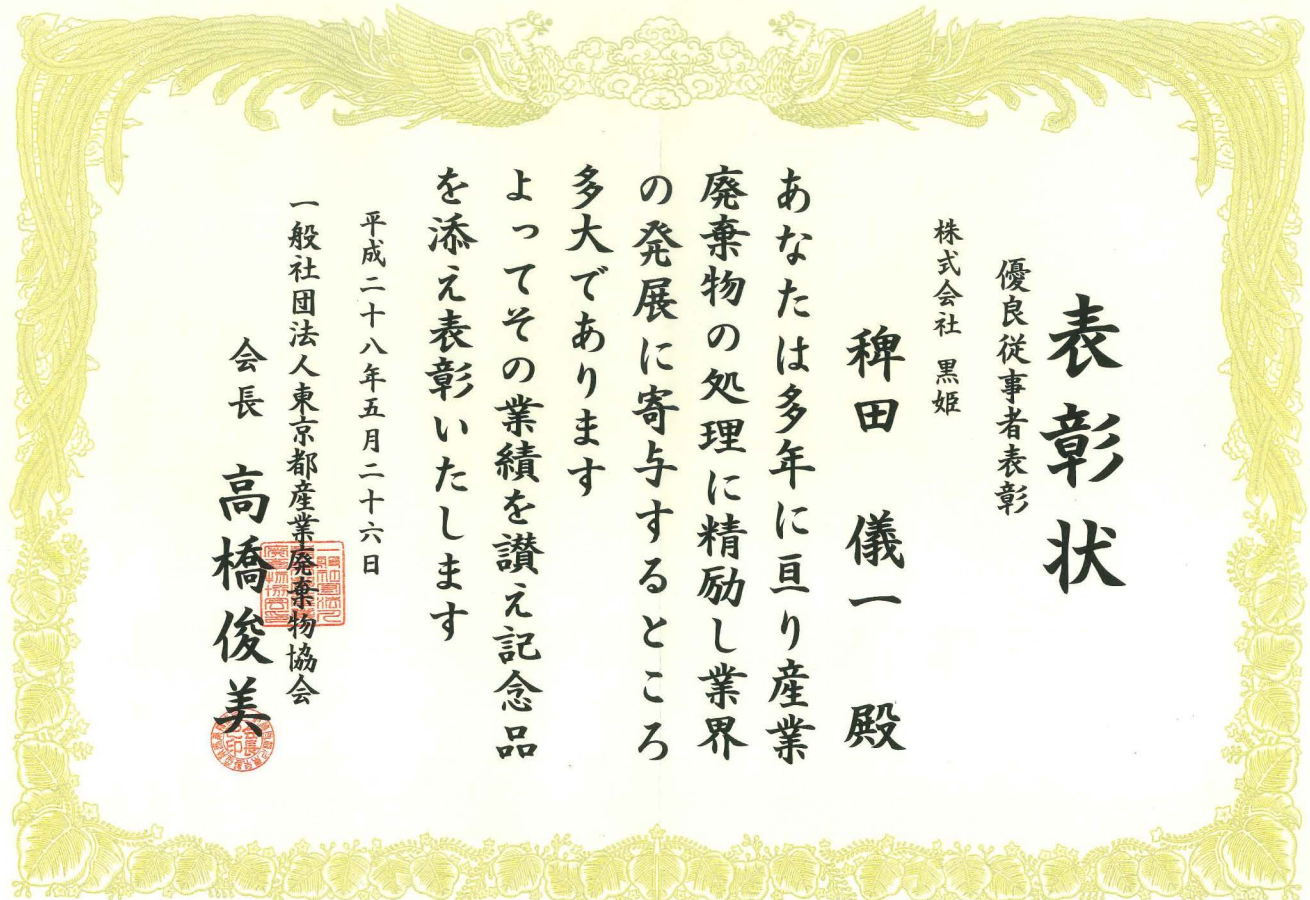 表彰状
優良従事者表彰
株式会社 黒姫
稗田 儀一 殿
あなたは多年に亘り産業
廃棄物の処理に精励し業界
の発展に寄与するところ
多大であります
よってその業績を讃え記念品
を添え表彰いたします
平成二十八年五月二十六日
一般社団法人東京都産業廃棄物協会
会長 高橋俊美